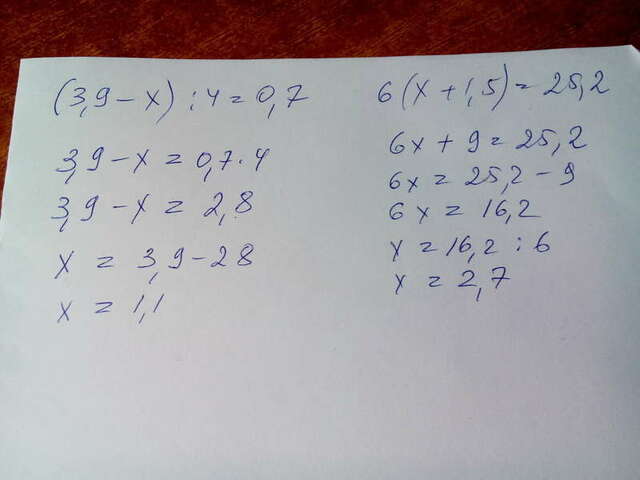 (3,9 - x) : 4 = 0,7
3,9 - x = 0,7 · 4
3,9 - x = 2,8
x = 3,9 - 28
x = 1,1
6(x + 1,5) = 25,2
6x + 9 = 25,2
6x = 25,2 - 9
6x = 16,2
x = 16,2 : 6
x = 2,7